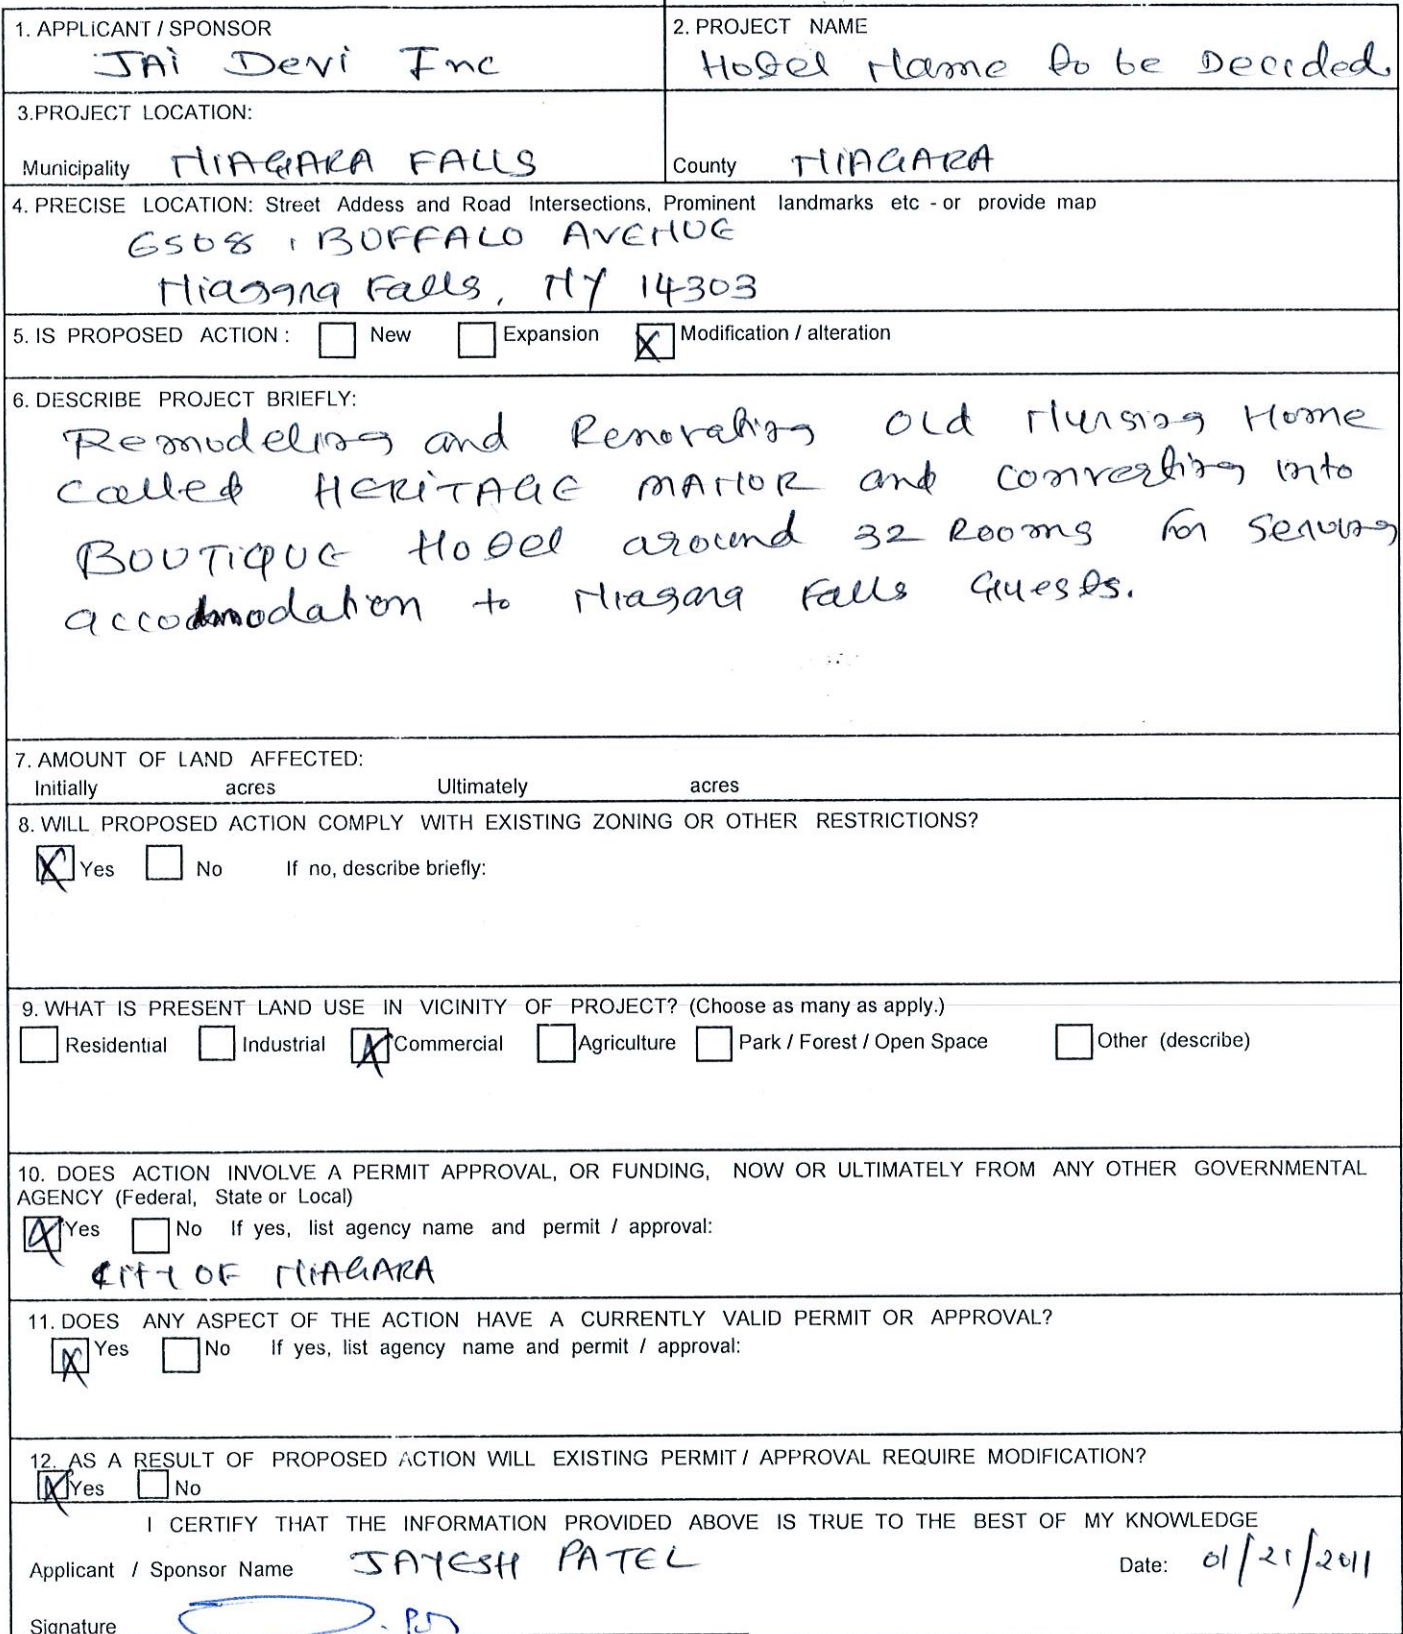 1. APPLICANT / SPONSOR
JAi Devi Inc
2. PROJECT NAME
Hotel Name to be Decided.
3.PROJECT LOCATION:
Municipality NIAGARA FALLS
County NIAGARA
4. PRECISE LOCATION: Street Addess and Road Intersections, Prominent landmarks etc - or provide map
6508, BUFFALO AVENUE
Niagara Falls, NY 14303
5. IS PROPOSED ACTION : New Expansion X Modification / alteration
6. DESCRIBE PROJECT BRIEFLY:
Remodeling and Renovating Old Nursing Home
called HERiTAGE MANOR and converting into
BOUTiQUE Hotel around 32 Rooms for serving
accodmodation to Niagara Falls Guests.
7. AMOUNT OF LAND AFFECTED:
Initially acres Ultimately acres
8. WILL PROPOSED ACTION COMPLY WITH EXISTING ZONING OR OTHER RESTRICTIONS?
X Yes No If no, describe briefly:
9. WHAT IS PRESENT LAND USE IN VICINITY OF PROJECT? (Choose as many as apply.)
Residential Industrial X Commercial Agriculture Park / Forest / Open Space Other (describe)
10. DOES ACTION INVOLVE A PERMIT APPROVAL, OR FUNDING, NOW OR ULTIMATELY FROM ANY OTHER GOVERNMENTAL
AGENCY (Federal, State or Local)
X Yes No If yes, list agency name and permit / approval:
CITY OF NIAGARA
11. DOES ANY ASPECT OF THE ACTION HAVE A CURRENTLY VALID PERMIT OR APPROVAL?
X Yes No If yes, list agency name and permit / approval:
12. AS A RESULT OF PROPOSED ACTION WILL EXISTING PERMIT / APPROVAL REQUIRE MODIFICATION?
X Yes No
I CERTIFY THAT THE INFORMATION PROVIDED ABOVE IS TRUE TO THE BEST OF MY KNOWLEDGE
Applicant / Sponsor Name JAYESH PATEL
Date: 01/21/2011
Signature